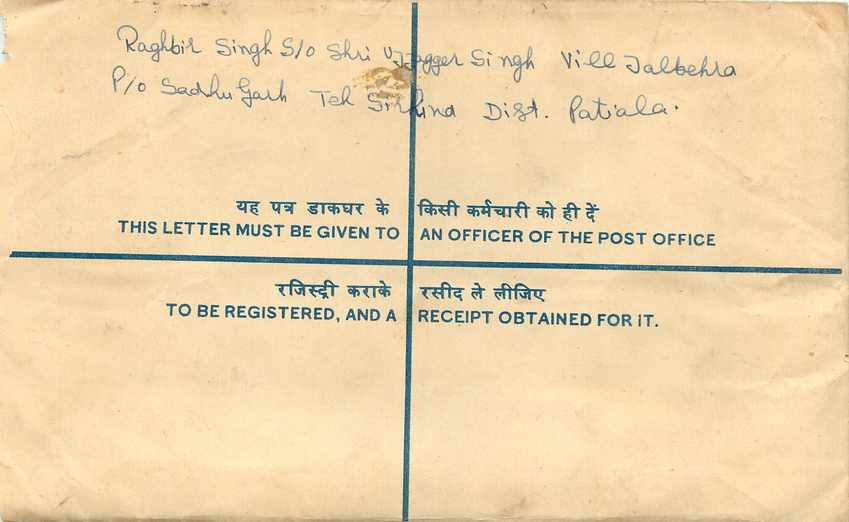 Raghbir Singh S/o Shri Ujjagger Singh Vill Jalbehra
P/o Sadhu Garh Teh Sirhind Dist. Patiala.
यह पत्र डाकघर के किसी कर्मचारी को ही दें
THIS LETTER MUST BE GIVEN TO AN OFFICER OF THE POST OFFICE
रजिस्ट्री कराके रसीद ले लीजिए
TO BE REGISTERED, AND A RECEIPT OBTAINED FOR IT.